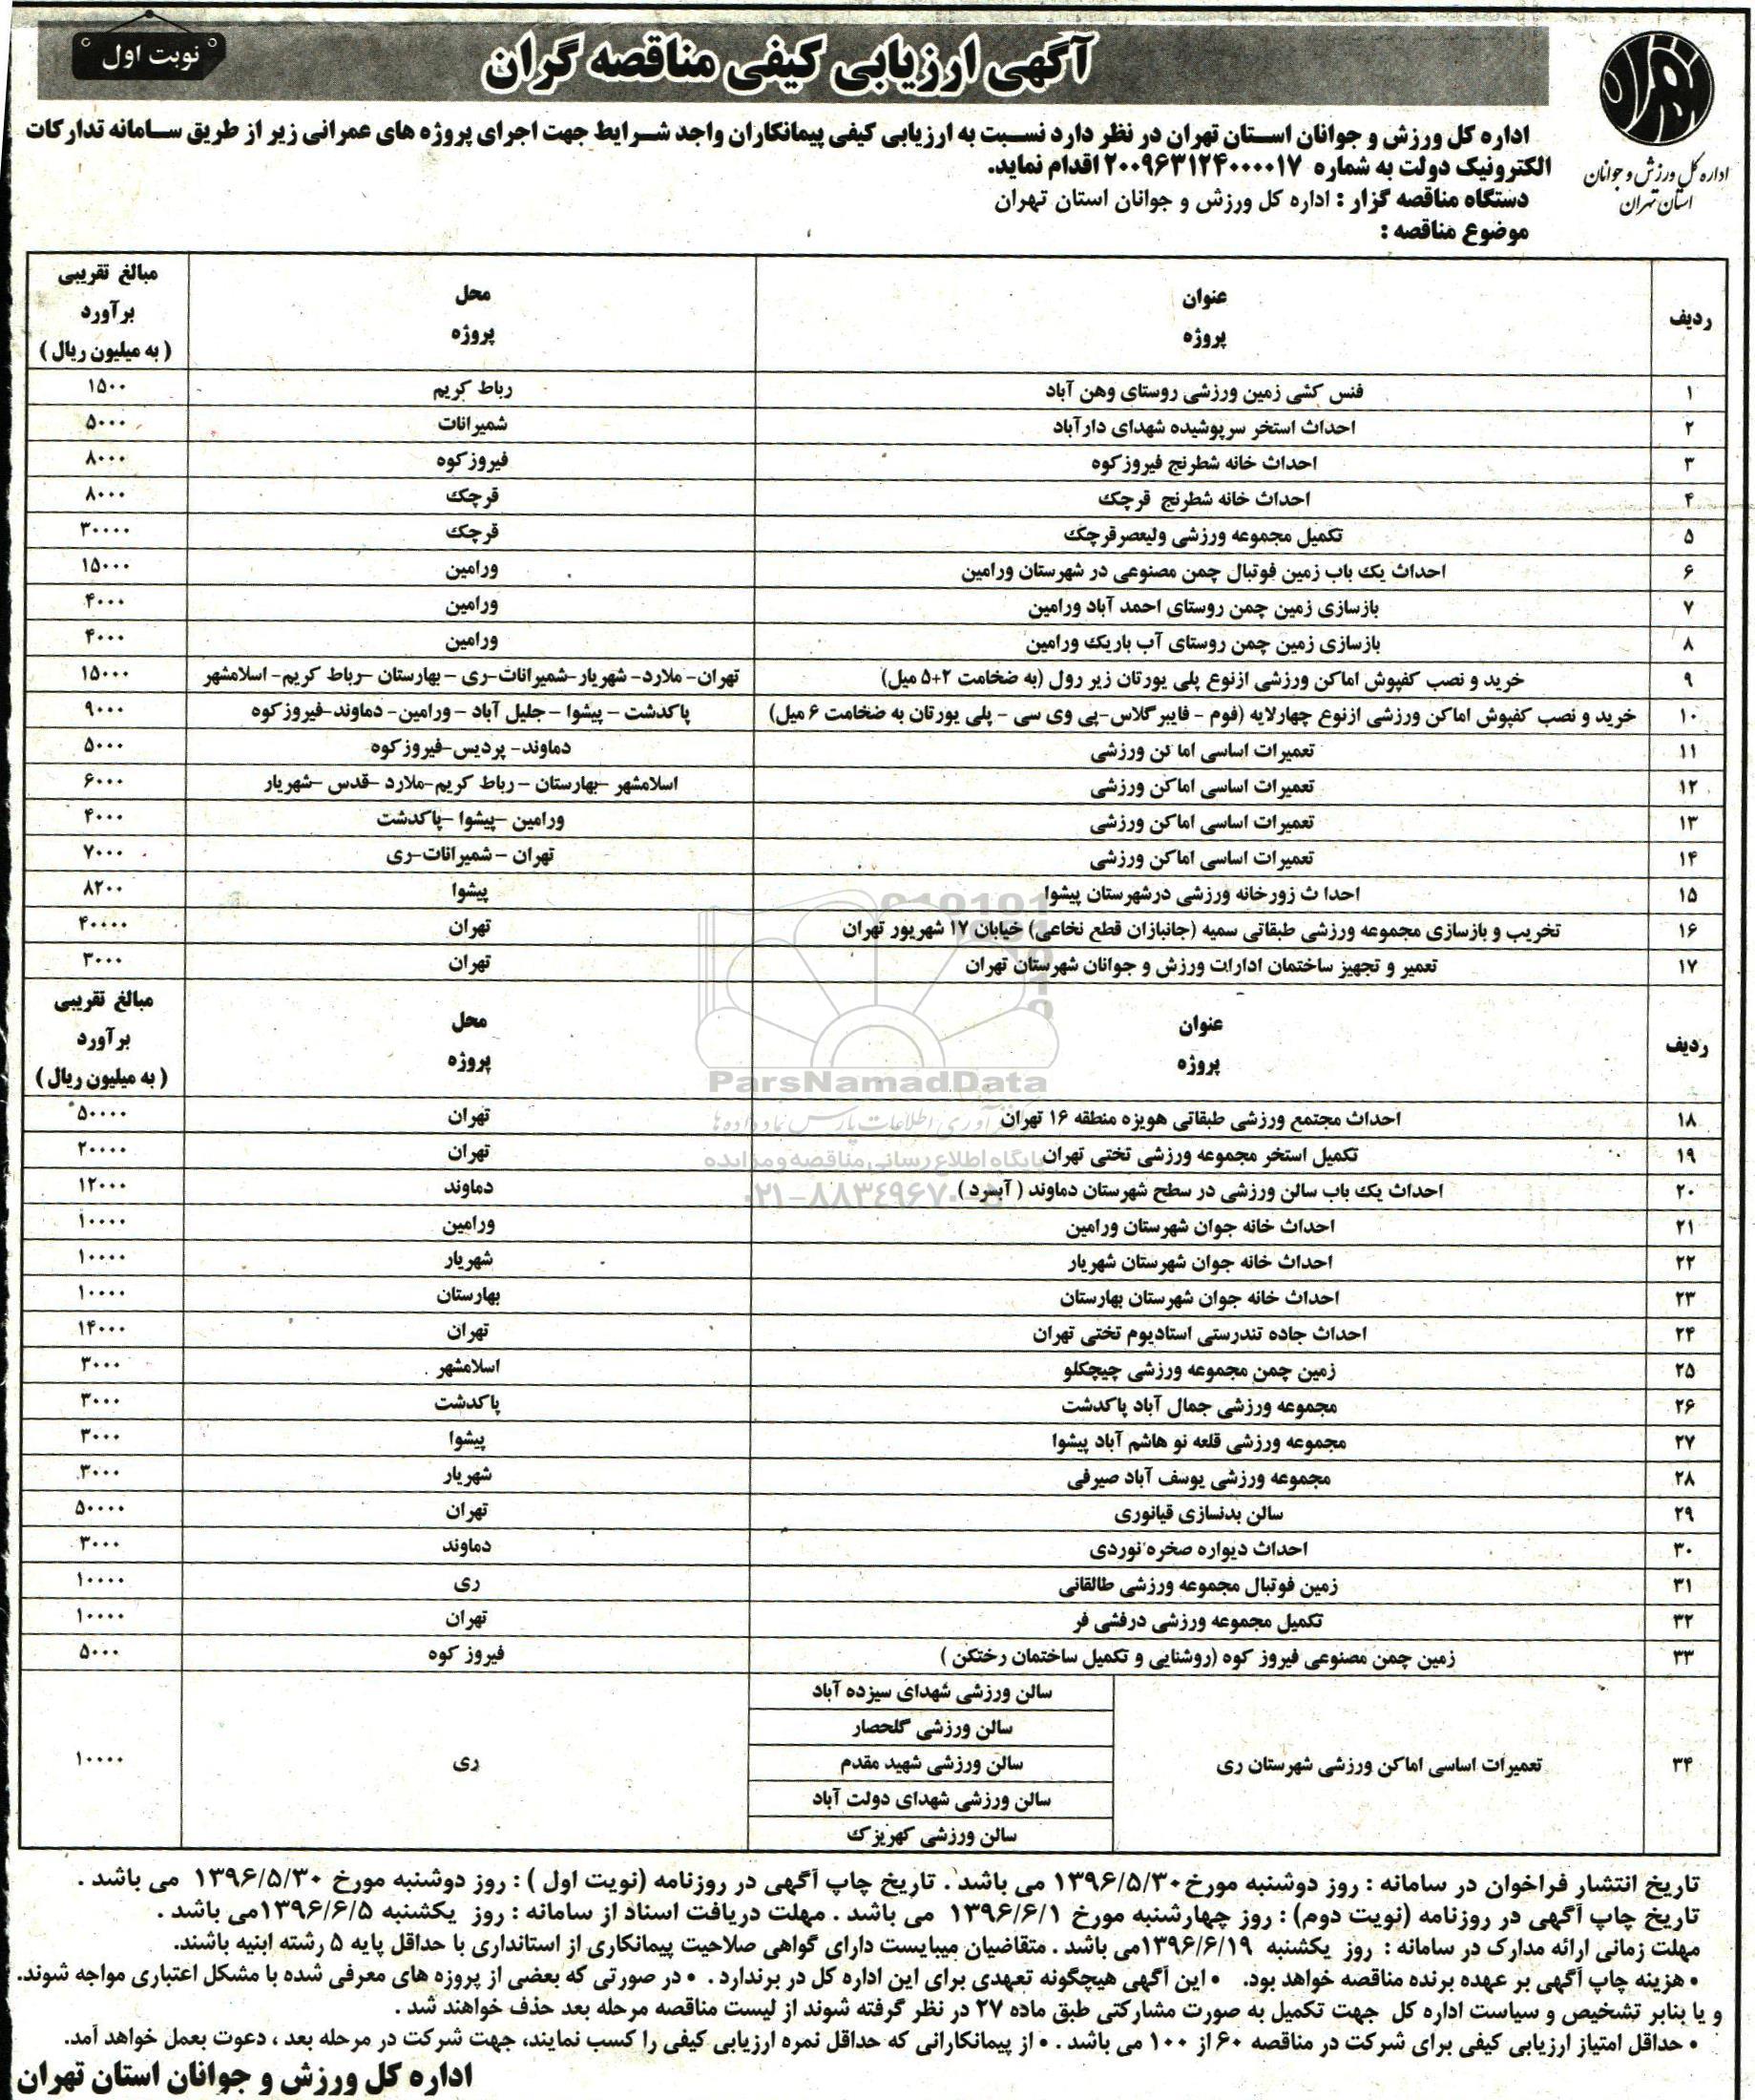 نوبت اول
آگهی ارزیابی کیفی مناقصه گران
اداره کل ورزش و جوانان
استان تهران
اداره کل ورزش و جوانان استان تهران در نظر دارد نسبت به ارزیابی کیفی پیمانکاران واجد شرایط جهت اجرای پروژه های عمرانی زیر از طریق سامانه تدارکات
الکترونیک دولت به شماره ۲۰۰۹۶۳۱۲۴۰۰۰۰۱۷ اقدام نماید.
دستگاه مناقصه گزار : اداره کل ورزش و جوانان استان تهران
موضوع مناقصه :
ردیف عنوان پروژه محل پروژه مبالغ تقریبی برآورد ( به میلیون ریال )
۱ فنس کشی زمین ورزشی روستای وهن آباد رباط کریم ۱۵۰۰
۲ احداث استخر سرپوشیده شهدای دارآباد شمیرانات ۵۰۰۰
۳ احداث خانه شطرنج فیروزکوه فیروزکوه ۸۰۰۰
۴ احداث خانه شطرنج قرچک قرچک ۸۰۰۰
۵ تکمیل مجموعه ورزشی ولیعصرقرچک قرچک ۳۰۰۰۰
۶ احداث یک باب زمین فوتبال چمن مصنوعی در شهرستان ورامین ورامین ۱۵۰۰۰
۷ بازسازی زمین چمن روستای احمد آباد ورامین ورامین ۴۰۰۰
۸ بازسازی زمین چمن روستای آب باریک ورامین ورامین ۴۰۰۰
۹ خرید و نصب کفپوش اماکن ورزشی ازنوع پلی یورتان زیر رول (به ضخامت ۲+۵ میل) تهران- ملارد- شهریار-شمیرانات-ری - بهارستان -رباط کریم- اسلامشهر ۱۵۰۰۰
۱۰ خرید و نصب کفپوش اماکن ورزشی ازنوع چهارلایه (فوم - فایبرگلاس-پی وی سی - پلی یورتان به ضخامت ۶ میل) پاکدشت - پیشوا - جلیل آباد - ورامین- دماوند-فیروزکوه ۹۰۰۰
۱۱ تعمیرات اساسی اماکن ورزشی دماوند- پردیس-فیروزکوه ۵۰۰۰
۱۲ تعمیرات اساسی اماکن ورزشی اسلامشهر -بهارستان - رباط کریم-ملارد -قدس -شهریار ۶۰۰۰
۱۳ تعمیرات اساسی اماکن ورزشی ورامین -پیشوا -پاکدشت ۴۰۰۰
۱۴ تعمیرات اساسی اماکن ورزشی تهران - شمیرانات-ری ۷۰۰۰
۱۵ احدا ث زورخانه ورزشی درشهرستان پیشوا پیشوا ۸۲۰۰
۱۶ تخریب و بازسازی مجموعه ورزشی طبقاتی سمیه (جانبازان قطع نخاعی) خیابان ۱۷ شهریور تهران تهران ۴۰۰۰۰
۱۷ تعمیر و تجهیز ساختمان ادارات ورزش و جوانان شهرستان تهران تهران ۳۰۰۰
ردیف عنوان پروژه محل پروژه مبالغ تقریبی برآورد ( به میلیون ریال )
ParsNamadData
۱۸ احداث مجتمع ورزشی طبقاتی هویزه منطقه ۱۶ تهران تهران ۵۰۰۰۰
۱۹ تکمیل استخر مجموعه ورزشی تختی تهران تهران ۲۰۰۰۰
پایگاه اطلاع رسانی مناقصه و مزایده
۲۰ احداث یک باب سالن ورزشی در سطح شهرستان دماوند ( آبسرد ) دماوند ۱۲۰۰۰
۰۲۱-۸۸۳٤۹۶۷۰-۵
۲۱ احداث خانه جوان شهرستان ورامین ورامین ۱۰۰۰۰
۲۲ احداث خانه جوان شهرستان شهریار شهریار ۱۰۰۰۰
۲۳ احداث خانه جوان شهرستان بهارستان بهارستان ۱۰۰۰۰
۲۴ احداث جاده تندرستی استادیوم تختی تهران تهران ۱۴۰۰۰
۲۵ زمین چمن مجموعه ورزشی چیچکلو اسلامشهر ۳۰۰۰
۲۶ مجموعه ورزشی جمال آباد پاکدشت پاکدشت ۳۰۰۰
۲۷ مجموعه ورزشی قلعه نو هاشم آباد پیشوا پیشوا ۳۰۰۰
۲۸ مجموعه ورزشی یوسف آباد صیرفی شهریار ۳۰۰۰
۲۹ سالن بدنسازی قیانوری تهران ۵۰۰۰۰
۳۰ احداث دیواره صخره نوردی دماوند ۳۰۰۰
۳۱ زمین فوتبال مجموعه ورزشی طالقانی ری ۱۰۰۰۰
۳۲ تکمیل مجموعه ورزشی درفشی فر تهران ۱۰۰۰۰
۳۳ زمین چمن مصنوعی فیروز کوه (روشنایی و تکمیل ساختمان رختکن ) فیروز کوه ۵۰۰۰
۳۴ تعمیرات اساسی اماکن ورزشی شهرستان ری
سالن ورزشی شهدای سیزده آباد
سالن ورزشی گلحصار
سالن ورزشی شهید مقدم
سالن ورزشی شهدای دولت آباد
سالن ورزشی کهریزک
ری ۱۰۰۰۰
تاریخ انتشار فراخوان در سامانه : روز دوشنبه مورخ۱۳۹۶/۵/۳۰ می باشد . تاریخ چاپ آگهی در روزنامه (نوبت اول ) : روز دوشنبه مورخ ۱۳۹۶/۵/۳۰ می باشد .
تاریخ چاپ آگهی در روزنامه (نوبت دوم) : روز چهارشنبه مورخ ۱۳۹۶/۶/۱ می باشد . مهلت دریافت اسناد از سامانه : روز یکشنبه ۱۳۹۶/۶/۵می باشد .
مهلت زمانی ارائه مدارک در سامانه : روز یکشنبه ۱۳۹۶/۶/۱۹می باشد . متقاضیان میبایست دارای گواهی صلاحیت پیمانکاری از استانداری با حداقل پایه ۵ رشته ابنیه باشند.
• هزینه چاپ آگهی بر عهده برنده مناقصه خواهد بود. • این آگهی هیچگونه تعهدی برای این اداره کل در برندارد . • در صورتی که بعضی از پروژه های معرفی شده با مشکل اعتباری مواجه شوند.
و یا بنابر تشخیص و سیاست اداره کل جهت تکمیل به صورت مشارکتی طبق ماده ۲۷ در نظر گرفته شوند از لیست مناقصه مرحله بعد حذف خواهند شد .
• حداقل امتیاز ارزیابی کیفی برای شرکت در مناقصه ۶۰ از ۱۰۰ می باشد . • از پیمانکارانی که حداقل نمره ارزیابی کیفی را کسب نمایند، جهت شرکت در مرحله بعد ، دعوت بعمل خواهد آمد.
اداره کل ورزش و جوانان استان تهران